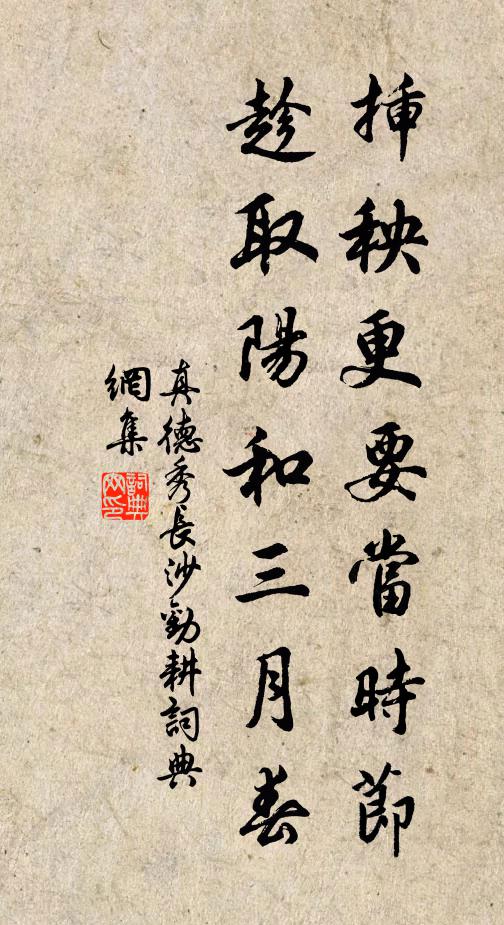 揷秧更要當時節
趁取陽和三月春
真德秀長沙勸耕詞典
網集
詞典
网印